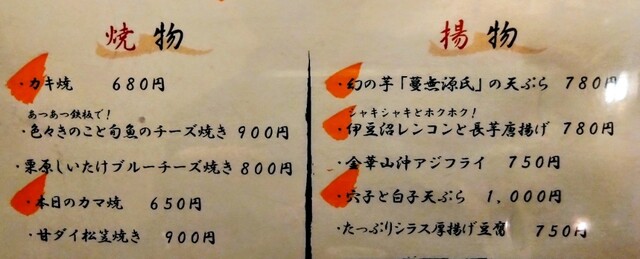 焼物
・カキ焼 680円
あつあつ鉄板で!
・色々きのこと旬魚のチーズ焼き 900円
・栗原しいたけブルーチーズ焼き 800円
・本日のカマ焼 650円
・甘ダイ松笠焼き 900円
揚物
・幻の芋「蔓無源氏」の天ぷら 780円
シャキシャキとホクホク!
・伊豆沼レンコンと長芋唐揚げ 780円
・金華山沖アジフライ 750円
・穴子と白子天ぷら 1,000円
・たっぷりシラス厚揚げ豆腐 750円